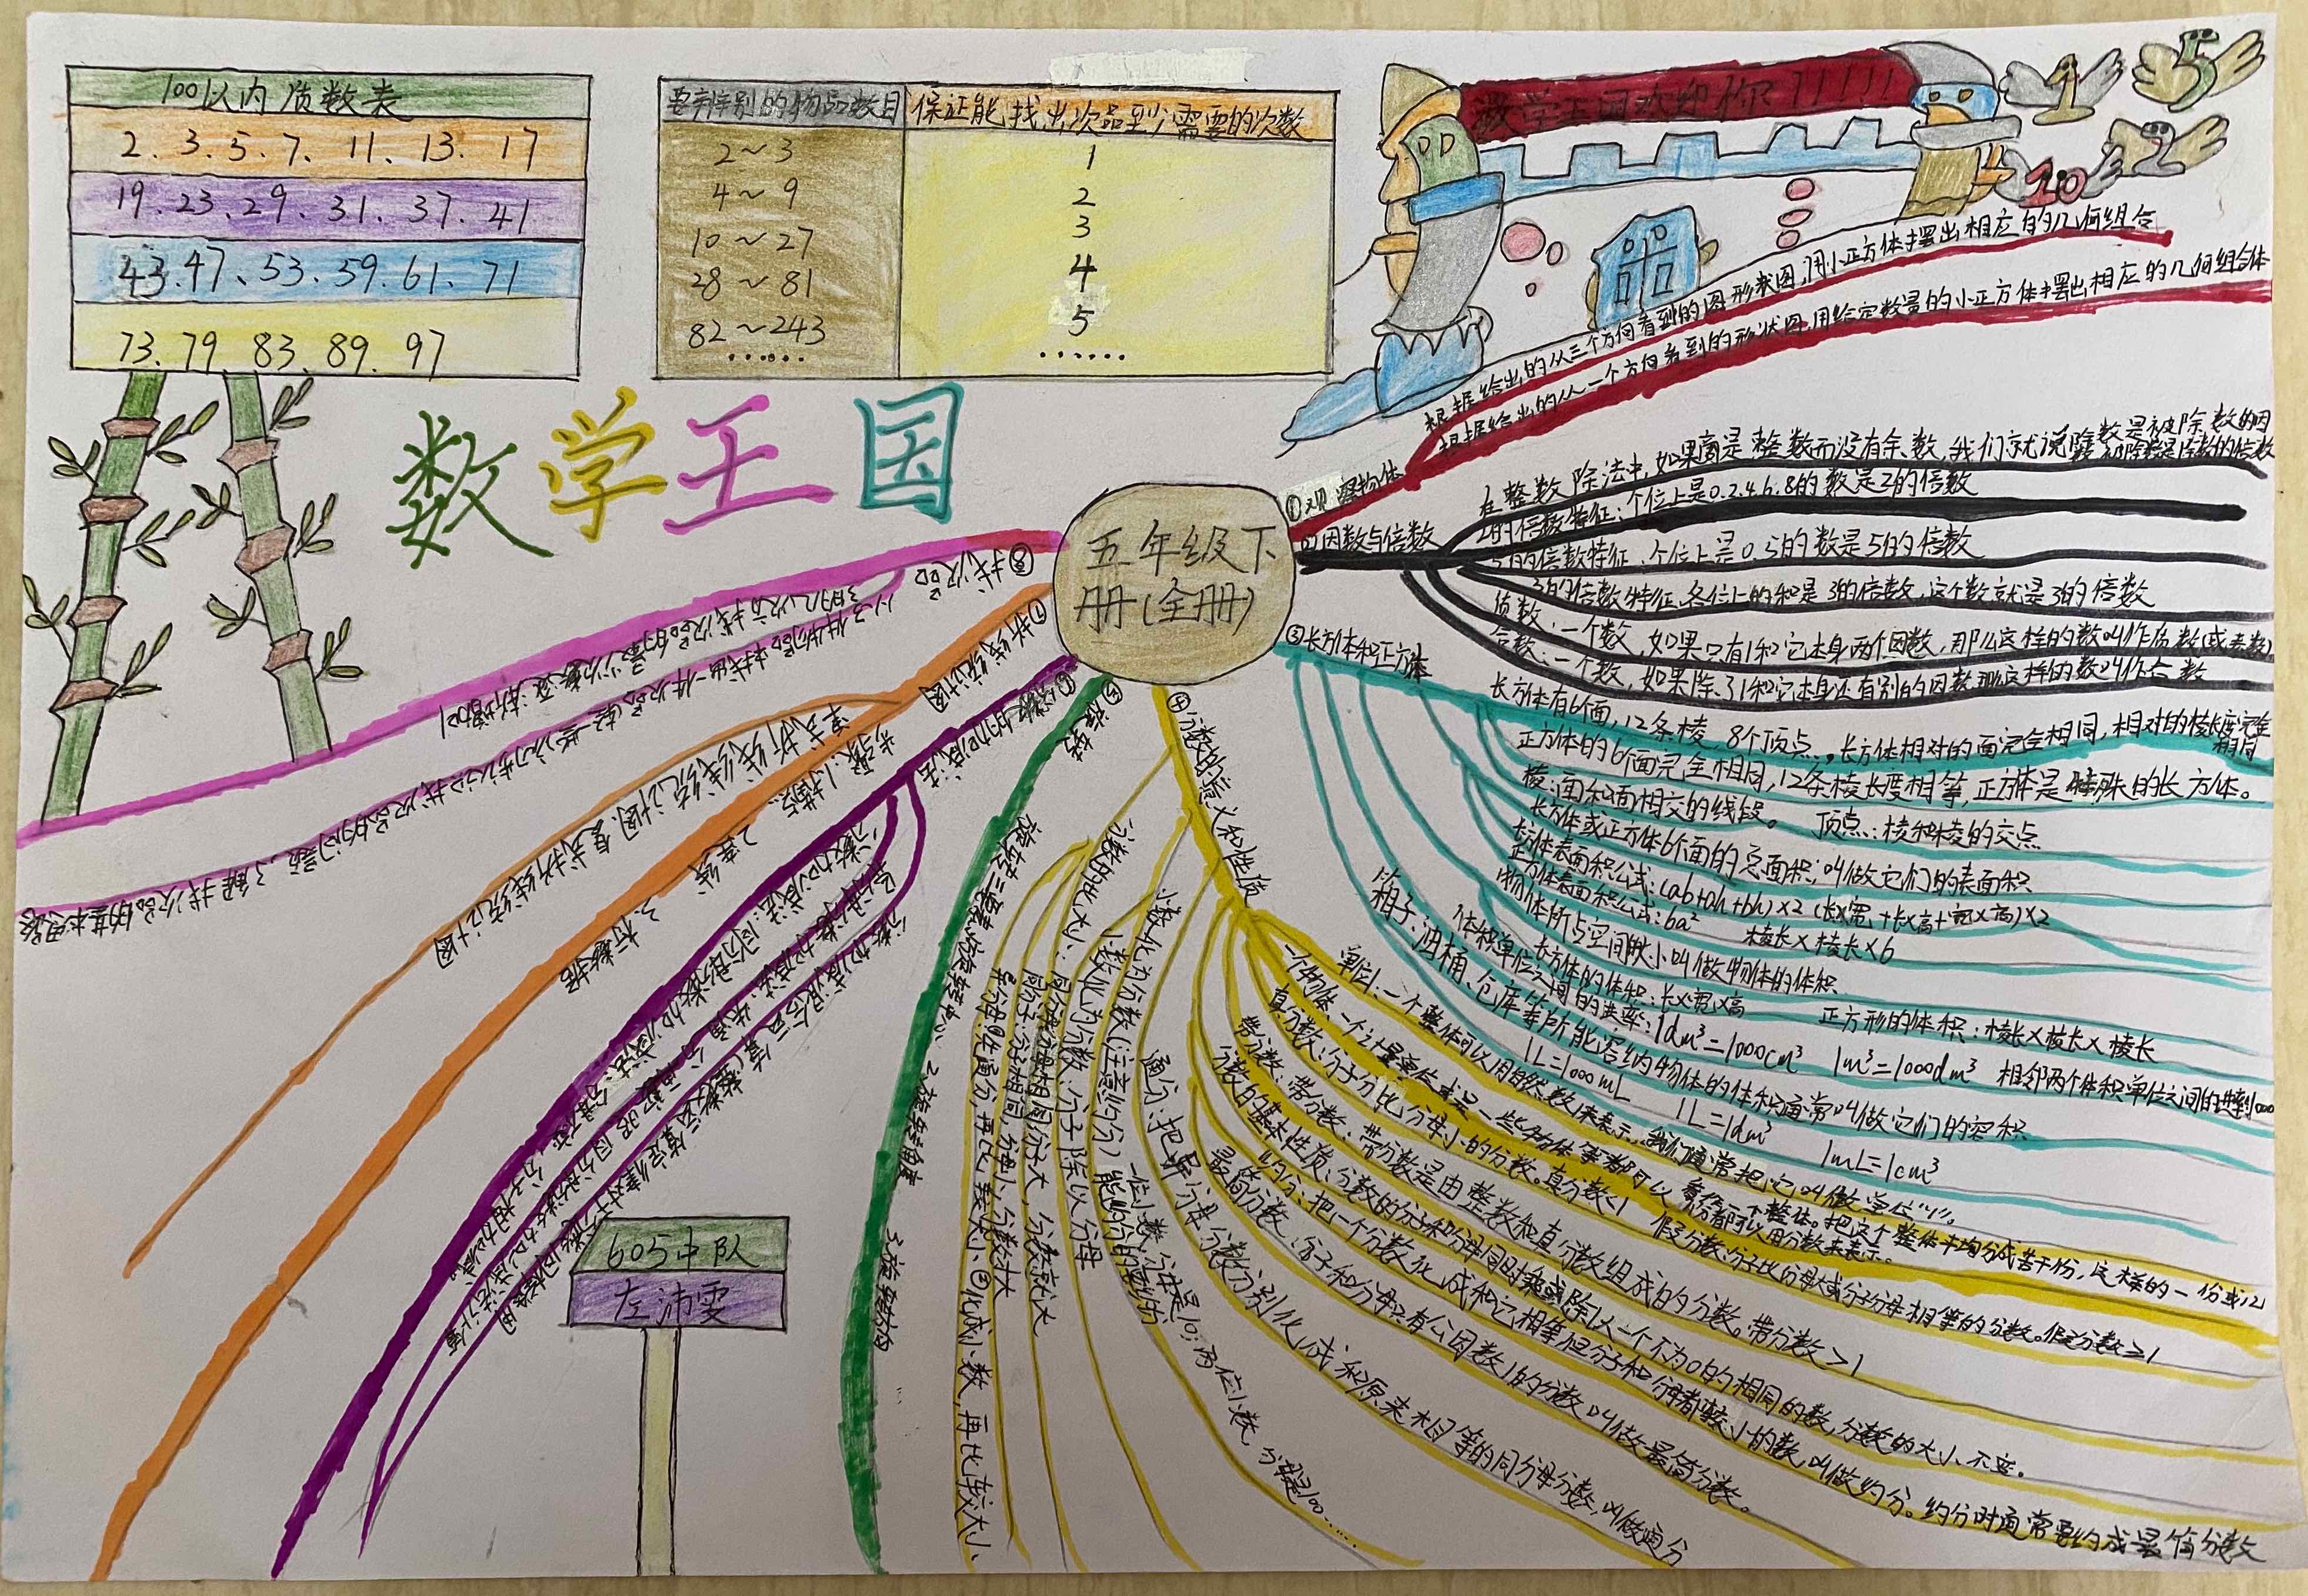 100以内质数表
2、3、5、7、11、13、17
19、23、29、31、37、41
43、47、53、59、61、71
73、79、83、89、97
要辨别的物品数目
保证能找出次品至少需要的次数
2~3
1
4~9
2
10~27
3
28~81
4
82~243
5
……
……
数学王国欢迎你!!!!!!
1
5
2
10
数学王国
五年级下
册(全册)
①观察物体
根据给出的从三个方向看到的图形状图,用小正方体摆出相应的几何组合
根据给出的从一个方向看到的形状图,用给定数量的小正方体摆出相应的几何组合体
②因数与倍数
在整数除法中,如果商是整数而没有余数,我们就说除数是被除数的因
2的倍数特征:个位上是0.2.4.6.8的数是2的倍数
5的倍数特征:个位上是0.5的数是5的倍数
3的倍数特征:各位上的和是3的倍数,这个数就是3的倍数
质数:一个数,如果只有1和它本身两个因数,那么这样的数叫作质数(或素数)
合数:一个数,如果除了1和它本身还有别的因数,那么这样的数叫作合数
③长方体和正方体
长方体有6个面,12条棱,8个顶点,长方体相对的面完全相同,相对的棱长度完全相同
正方体的6个面完全相同,12条棱长度相等,正方体是特殊的长方体。
棱:面和面相交的线段。 顶点:棱和棱的交点
长方体或正方体6个面的总面积,叫做它们的表面积
长方体表面积公式:(ab+ah+bh)×2 (长×宽+长×高+宽×高)×2
正方体表面积公式:6a² 棱长×棱长×6
物体所占空间的大小叫做物体的体积
长方体的体积:长×宽×高 正方形的体积:棱长×棱长×棱长
体积单位之间的进率:1dm³=1000cm³ 1m³=1000dm³ 相邻两个体积单位之间的进率到1000
箱子、油桶、仓库等所能容纳的物体的体积通常叫做它们的容积
1L=1000mL 1L=1dm³ 1mL=1cm³
④分数的意义和性质
单位1:一个整体可以用自然数1来表示,我们通常把它叫做单位"1"。
一个物体、一个计量单位或是一些物体等都可以看作一个整体。把这个整体平均分成若干份,这样的一份或几
份都可以用分数来表示。
真分数:分子比分母小的分数。真分数<1 假分数:分子比分母大或分子分母相等的分数。假分数≥1
带分数:带分数是由整数和真分数组成的分数。带分数>1
分数的基本性质:分数的分子和分母同时乘或除以一个不为0的相同的数,分数的大小不变。
约分:把一个分数化成和它相等但分子和分母都较小的数,叫做约分。约分时通常要约成最简分数
最简分数:分子和分母只有公因数1的分数叫做最简分数。
通分:把异分母分数分别化成和原来相等的同分母分数,叫做通分
小数化为分数(注意约分)能约分的要约分
一位小数,分母是10;两位小数,分母是100……
分数化为小数:分子除以分母
分数的比大小:同分母:分母相同分子大,分数就大
同分子:分子相同,分母小,分数大
异分母:①先通分,再比较大小②化成小数,再比较大小
⑤旋转
旋转三要素:1、旋转中心 2、旋转角度 3、旋转方向
⑥分数的加减法
同分母分数加减法:分母不变,分子相加减。
异分母分数加减法:先通分
⑦折线统计图
单式折线统计图、复式折线统计图
步骤:1、描点 2、连线 3、标数据
⑧找次品
605中队
左沛雯